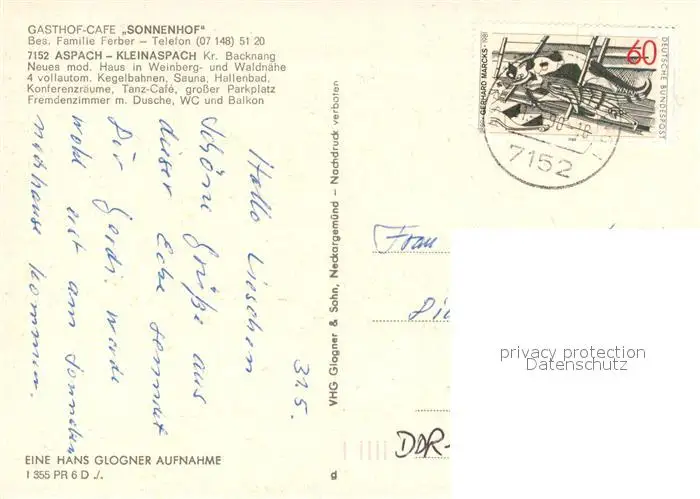 GASTHOF-CAFE „SONNENHOF"
Bes. Familie Ferber – Telefon (07 148) 51 20
7152 ASPACH – KLEINASPACH Kr. Backnang
Neues mod. Haus in Weinberg- und Waldnähe
4 vollautom. Kegelbahnen, Sauna, Hallenbad,
Konferenzräume, Tanz-Café, großer Parkplatz
Fremdenzimmer m. Dusche, WC und Balkon
31.5.
Hallo Lieschen
Schöne Grüße aus
dieser Ecke sendet
Dir Gerdi. werde
wohl erst am Sonnabend
nachhause kommen.
EINE HANS GLOGNER AUFNAHME
1 355 PR 6 D ./.
VHG Glogner & Sohn, Neckargemünd – Nachdruck verboten
g
GERHARD MARCKS · 1981
60
DEUTSCHE BUNDESPOST
7152
Frau
DDR-
privacy protection
Datenschutz